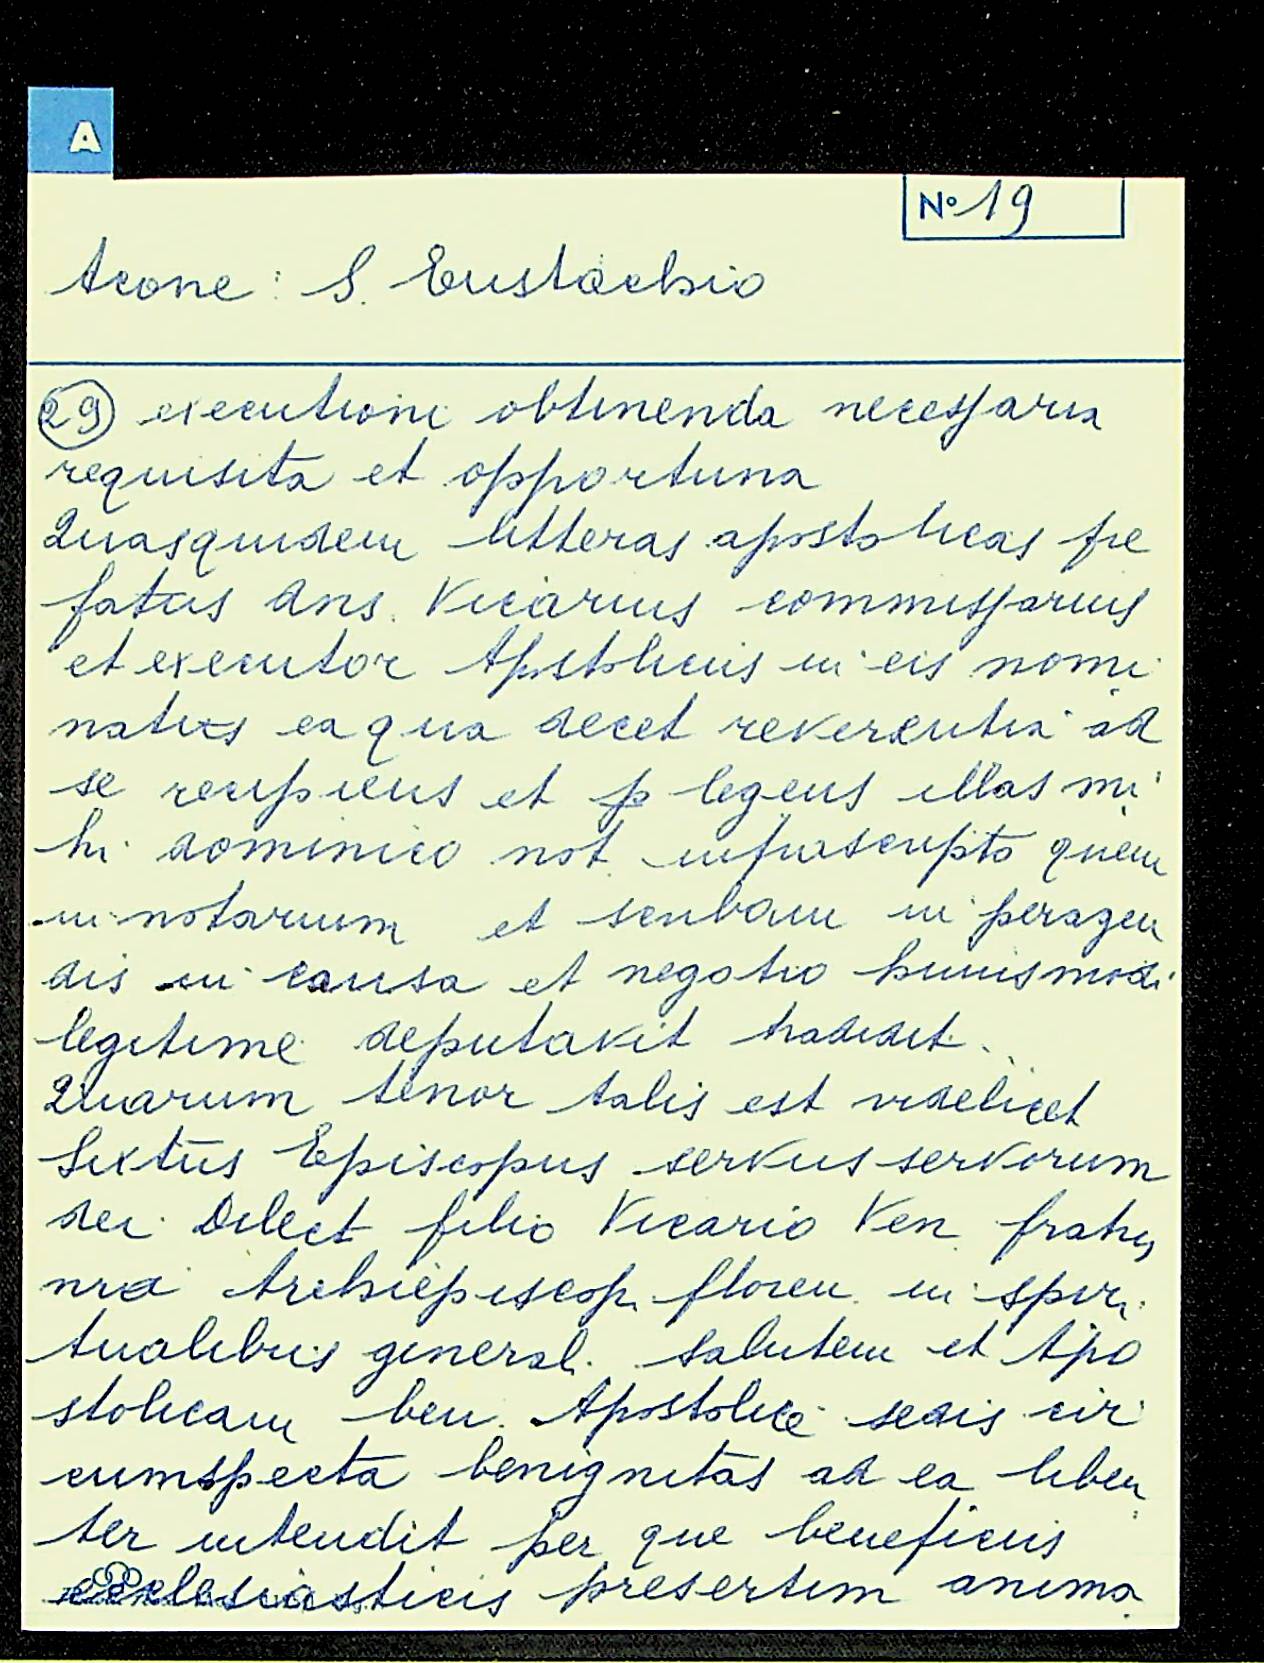 A
No 19
Acone: S. Eustachio
29 executioni obtinenda necessaria
requisita et opportuna
Quasquidem litteras apostolicas pre
fatus dns. Vicarius commissarius
et executor Apostolicus in eis nomi
natus ea qua decet reverentia ad
se recipiens et p legens illas mi
hi dominico not. infrascripto quem
in notarium et scribam in peragen
dis in causa et negotio huiusmodi
legitime deputavit tradidit.
Quarum tenor talis est videlicet
Sixtus Episcopus servus servorum
dei Dilect filio Vicario Ven. fratris
nrd Archiepiscop. floren. in spiri
tualibus general. salutem et Apo
stolicam ben. Apostolice sedis cir
cumspecta benignitas ad ea liben
ter intendit per que beneficiis
ecclesiasticis presertim anima